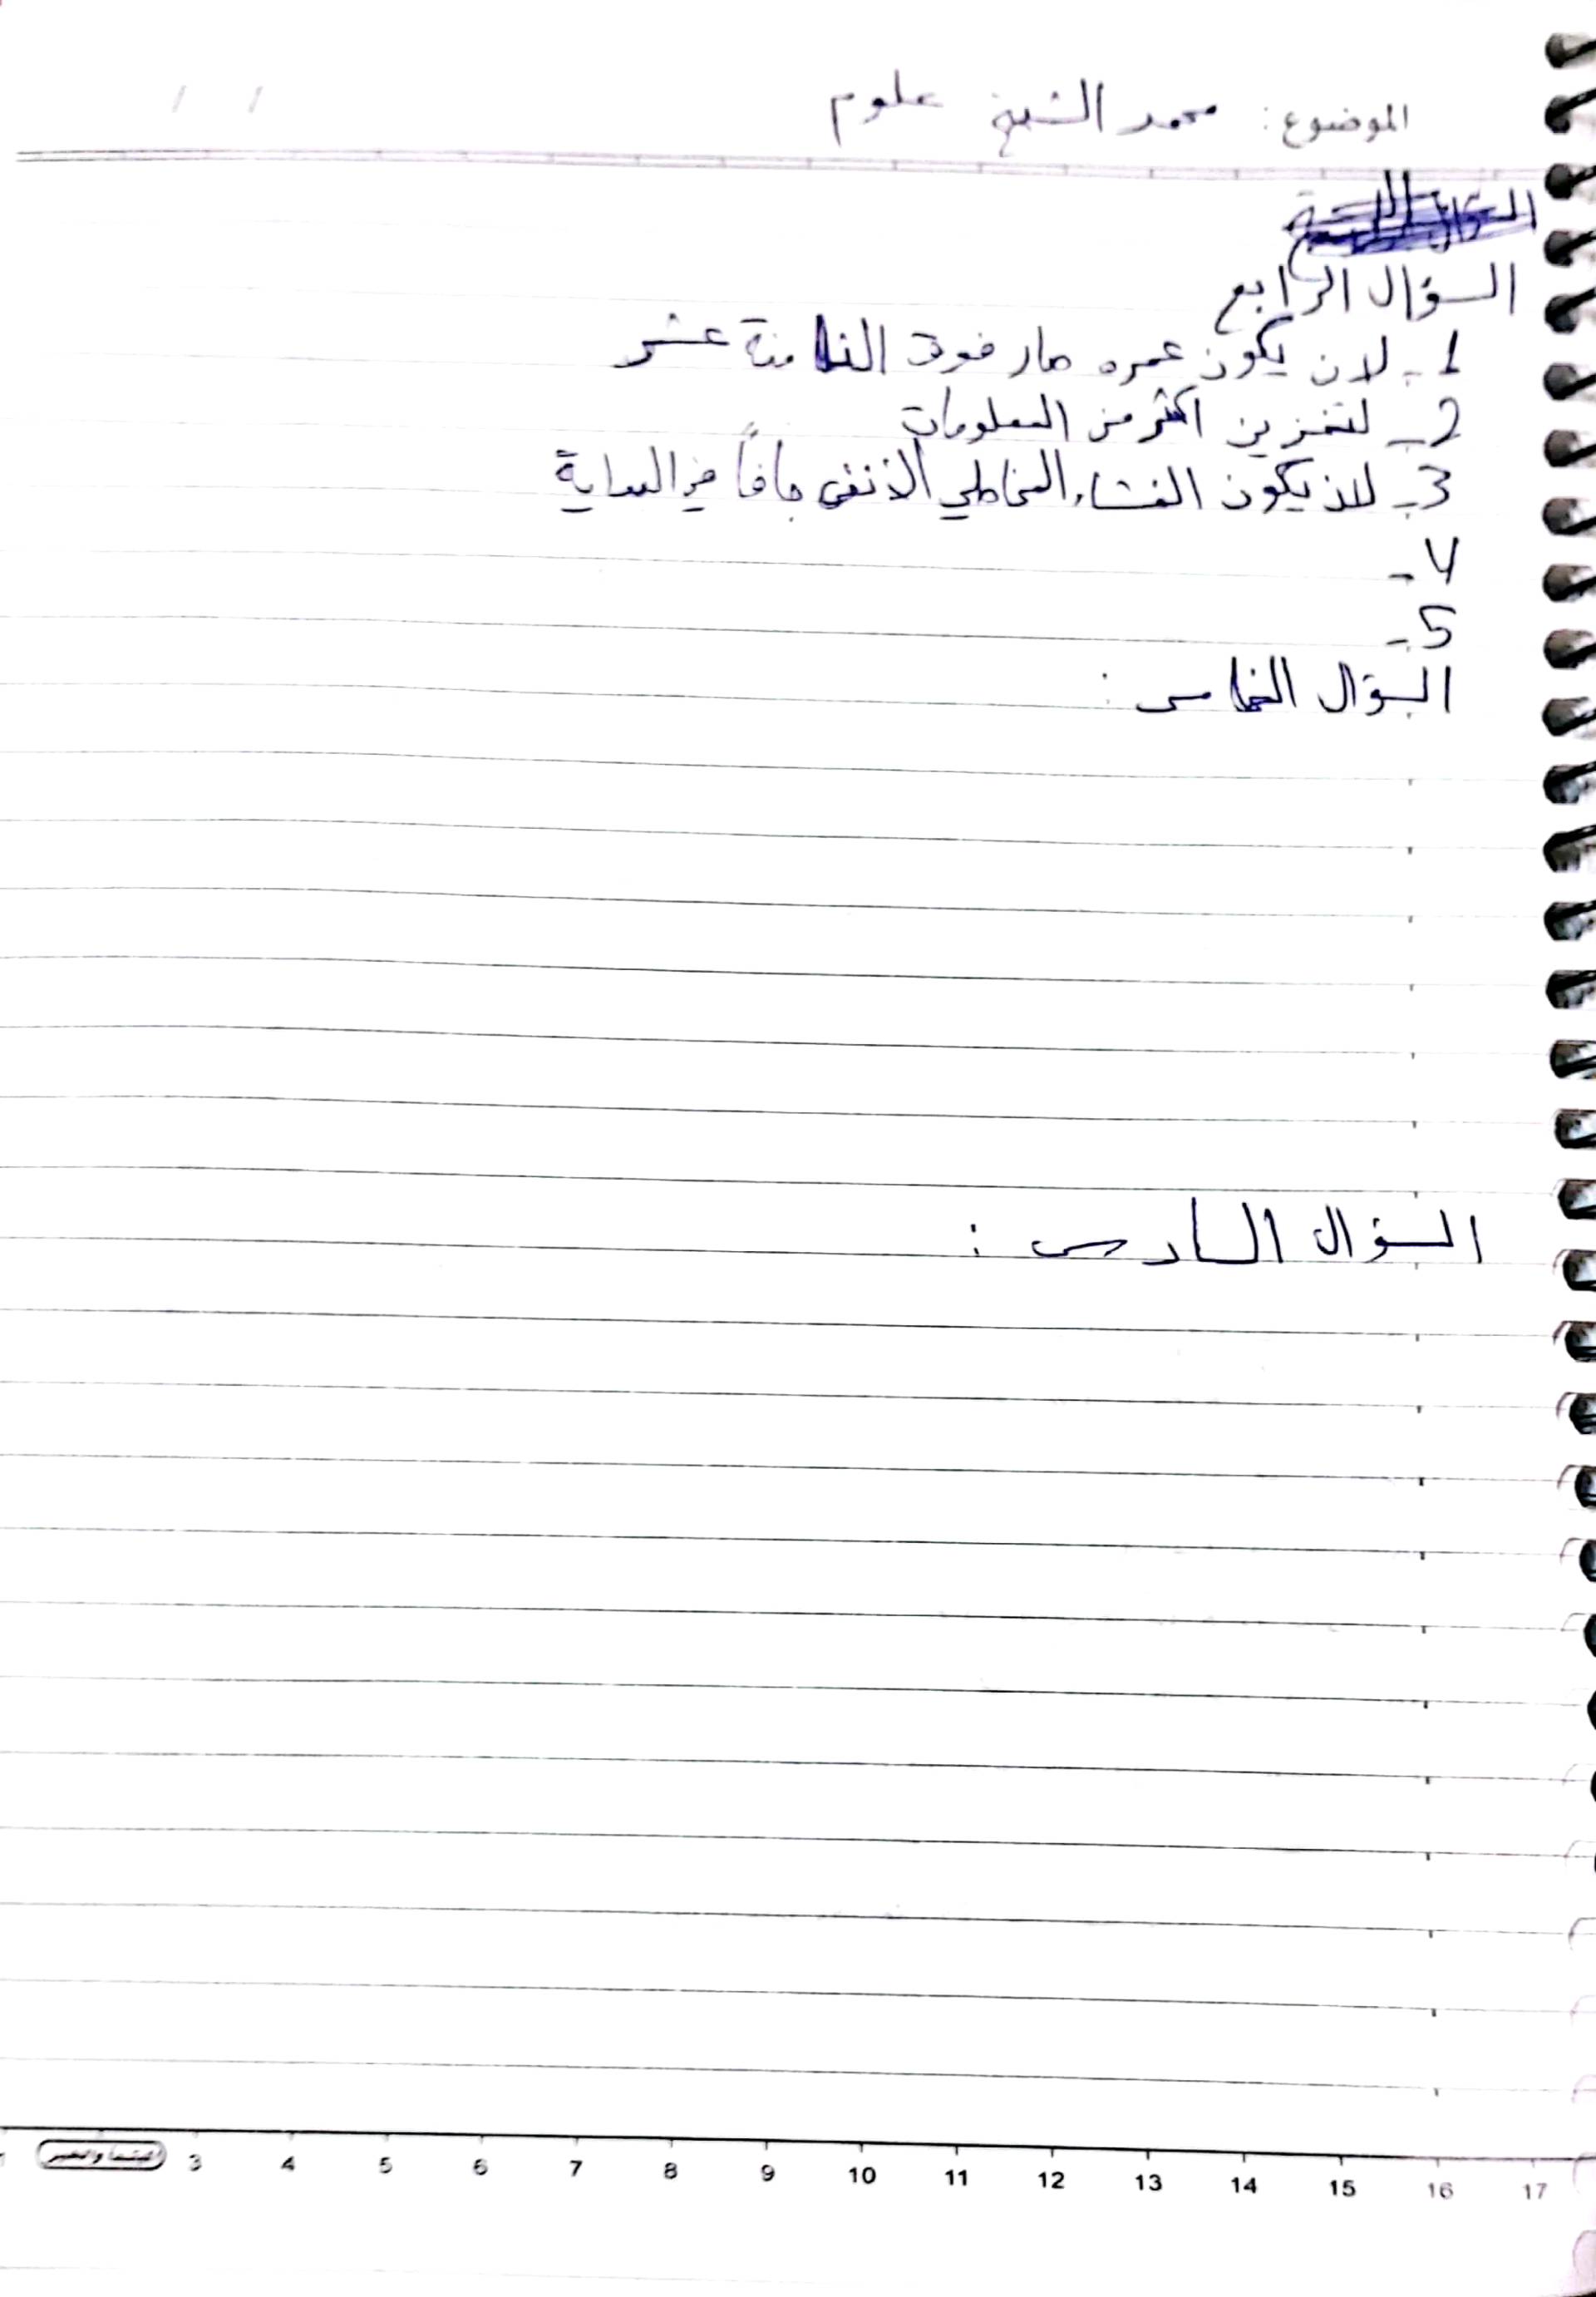 الموضوع: محمد الشيخ علوم
السؤال الرابع
1- لان يكون عمره صار فوق الثامنة عشر
2- لتخزين اكثر من المعلومات
3- لان يكون الغشاء المخاطي الانفي جافاً في البداية
4-
5-
السؤال الخامس :
السؤال السادس :
3 4 5 6 7 8 9 10 11 12 13 14 15 16 17